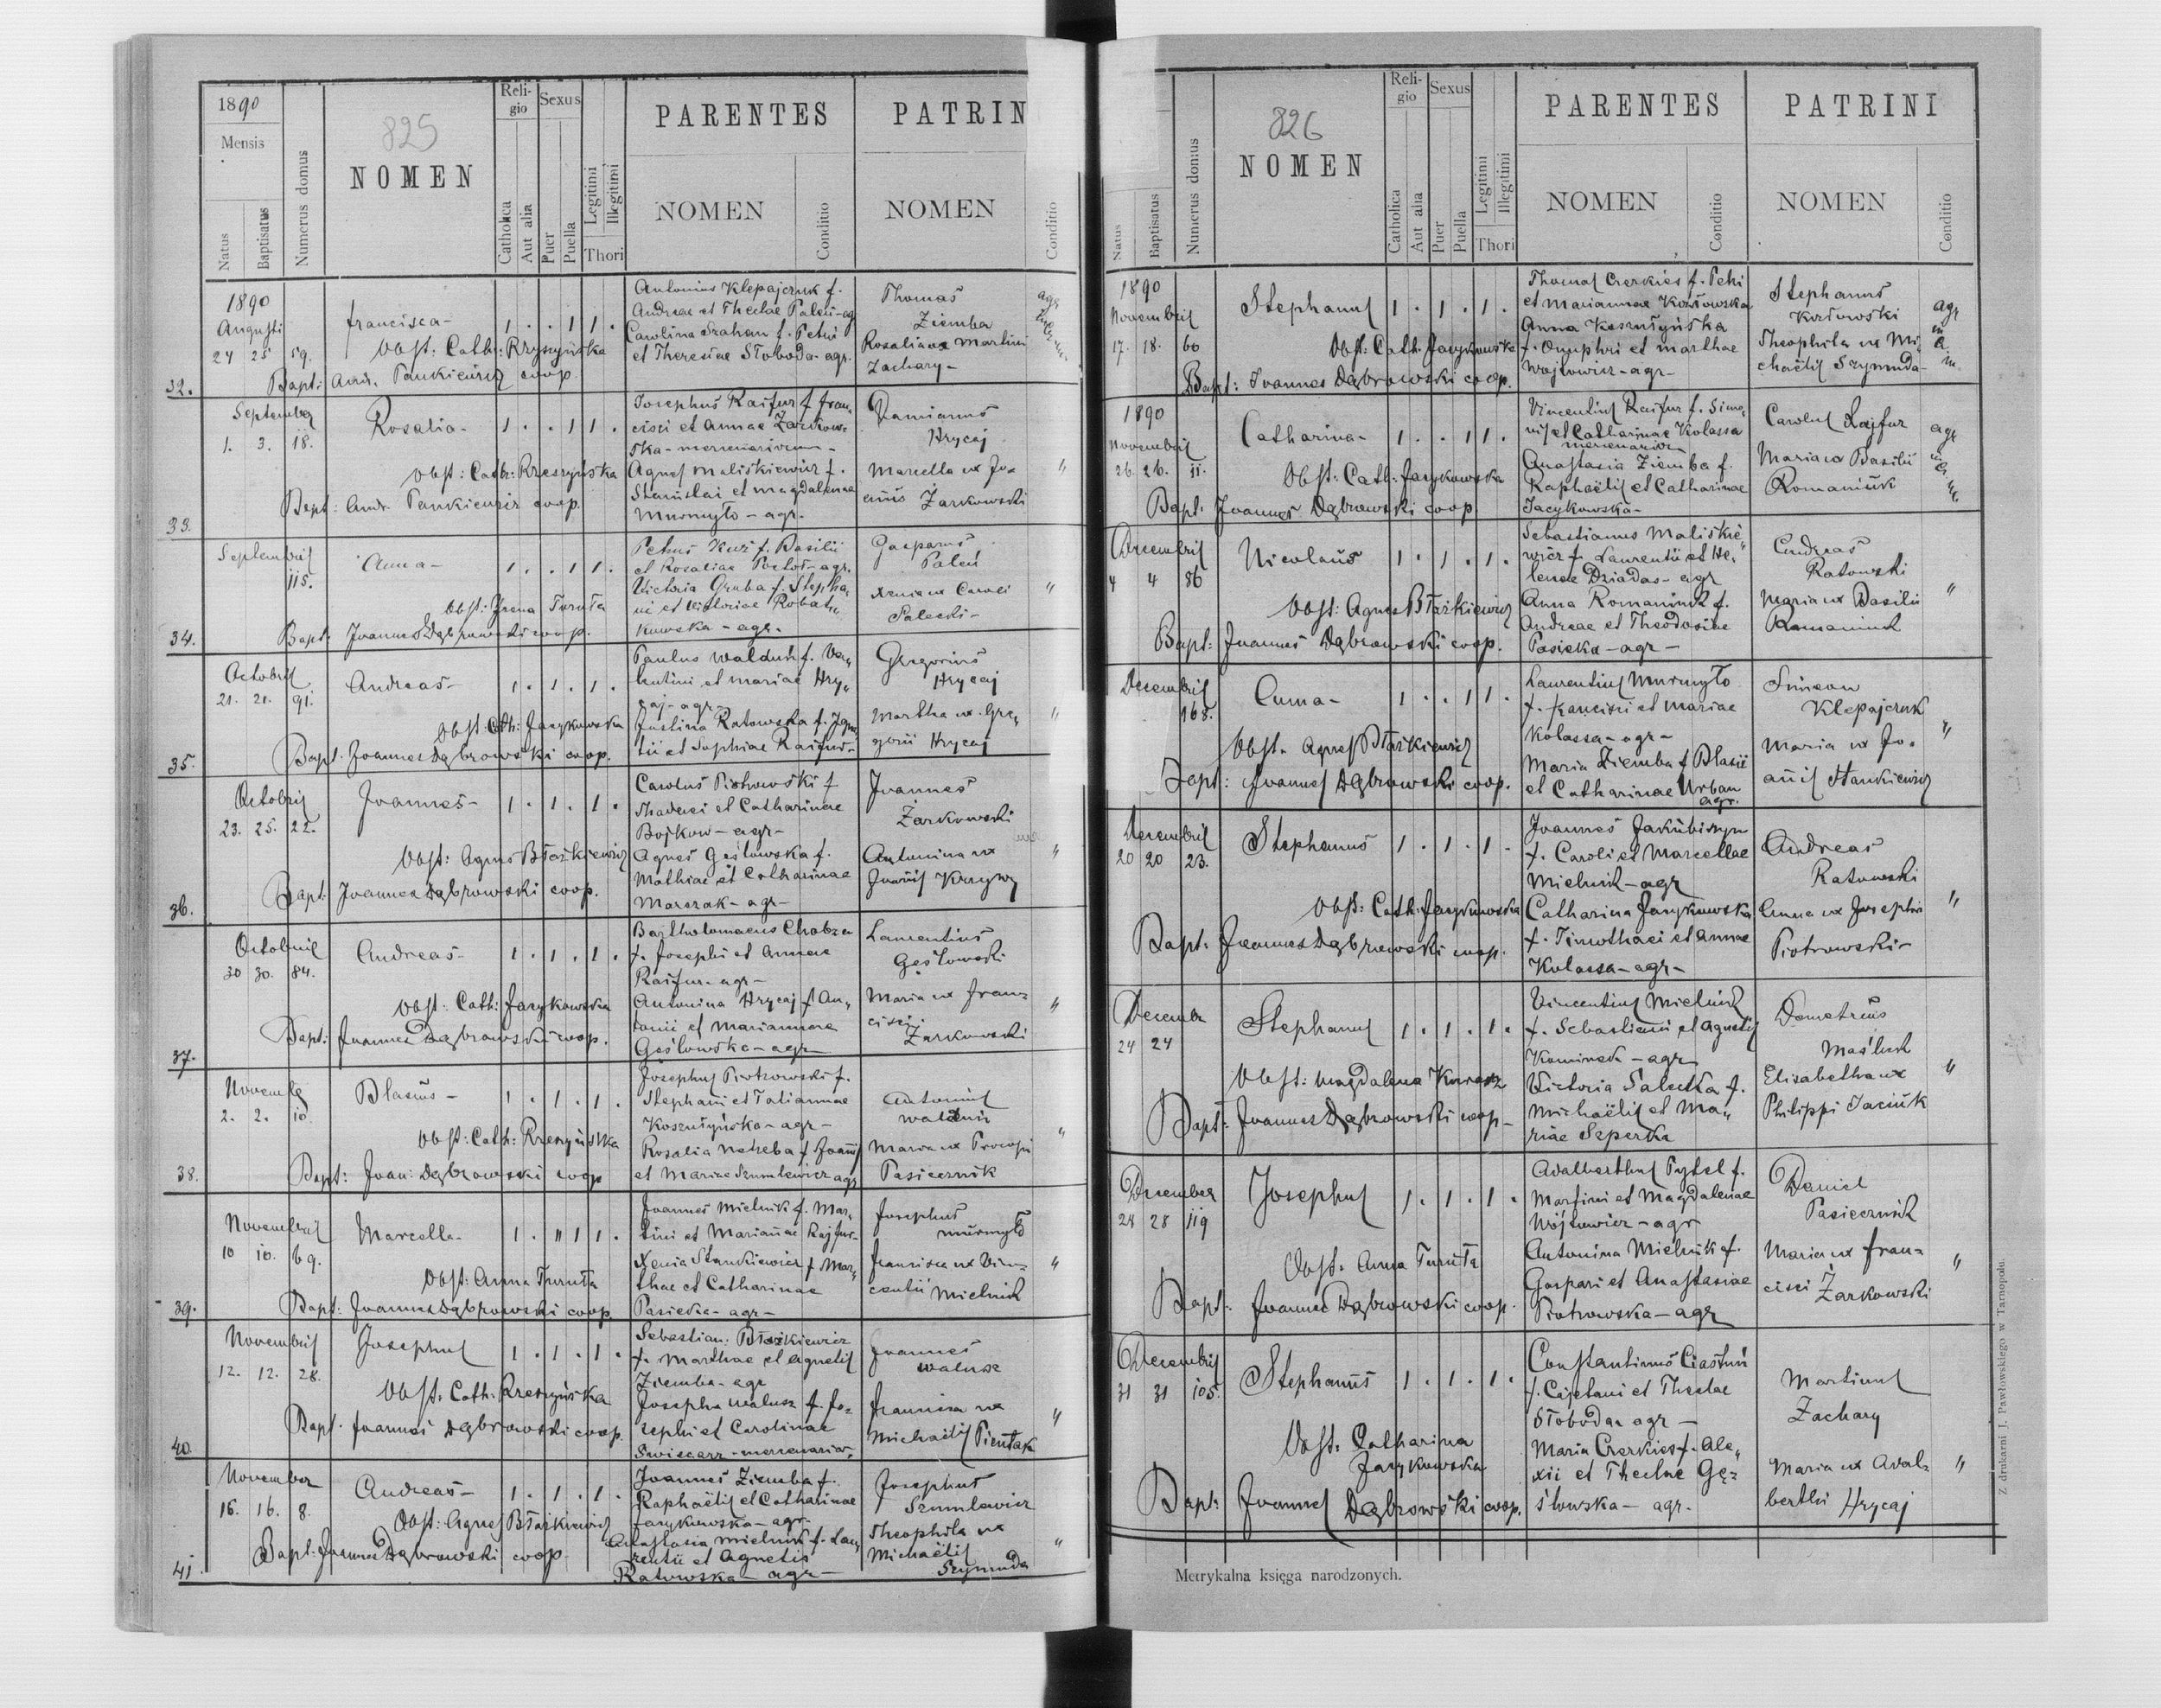 1890
Mensis
Natus
Baptisatus
Numerus domus
825
NOMEN
Religio
Catholica
Aut alia
Sexus
Puer
Puella
Legitimi
Illegitimi
Thori
PARENTES
NOMEN
Conditio
PATRIN
NOMEN
Conditio
1890
Augusti
24 25 59.
Francisca-
1 . . 1 1 .
Obst: Cath: Rzeszyńska
Bapt: And. Pankiewicz coop.
32.
Antonius Klepajczuk f.
Andreae et Theclae Paleń-ag
Carolina Szahan f. Petri
et Theresiae Słoboda-agr.
Thomas
Ziemba
Rosalia ux Martini
Zachary-
Septembr
1. 3. 18.
Rosalia-
1 . . 1 1 .
Obst: Cath: Rzeszyńska
Bapt: And. Pankiewicz coop.
33.
Josephus Rajfur f. Fran-
cisci et Annae Żarkow-
ska-mercenariorum-
Agnes Maliskiewicz f.
Stanislai et Magdalenae
Murmyło-agr.
Damianus
Hrycaj
Marcella ux Jo-
annis Żarkowski
"
Septembris
115.
Anna-
1 . . 1 1 .
Obst: Irena Turuta
Bapt: Joannes Dąbrowski coop.
34.
f. Basilii
et Rosaliae
Victoria Gruba f. Stepha
ni et Victoriae
- agr.
Gasparus
Paleń
Xenia ux Caroli
Salecki-
"
Octobris
21. 21. 91.
Andreas-
1 . 1 . 1 .
Obst: Cath: Jazykowska
Bapt. Joannes Dąbrowski coop.
35.
Paulus Walduch f. Va-
lentini et Mariae Hry-
caj-agr-
Justina Ratowska f. Igna
tii et Sophiae Rajfur-
Gregorius
Hrycaj
Martha ux. Gre-
gorii Hrycaj
"
Octobris
23. 25. 22.
Joannes-
1 . 1 . 1 .
Obst: Agnes Błaszkiewicz
Bapt: Joannes Dąbrowski coop.
36.
Carolus Piotrowski f
Thadaei et Catharinae
Bojkow-agr-
Agnes Gęsłowska f.
Mathiae et Catharinae
Marszak-agr-
Joannes
Żarkowski
Antonina ux
Joannis Krzywy
"
Octobris
30 30. 84.
Andreas-
1 . 1 . 1 .
Obst: Cath: Jazykowska
Bapt: Joannes Dąbrowski coop.
37.
Bartholomaeus Chabza
f. Josephi et Annae
Rajfur-agr-
Antonina Hrycaj f An-
tonii et Mariannae
Gęsłowska-agr-
Laurentius
Gęsłowski
Maria ux Fran-
cisci
Żarkowski
"
Novembr
2. 2. 10.
Blasius-
1 . 1 . 1 .
Obst: Cath: Rzeszyńska
Bapt: Joan: Dąbrowski coop
38.
Josephus Piotrowski f.
Stephani et Tatiannae
Koszutyńska-agr-
Rosalia Nahreba f Joannis
et Mariae Szumlewicz agr
Antonius
Walduch
Maria ux Procopii
Pasiecznik
"
Novembris
10 10. 69.
Marcella-
1 . " 1 1 .
Obst: Anna Turuta
Bapt: Joannes Dąbrowski coop.
39.
Joannes Mielnik f. Mar-
tini et Mariannae Rajfur-
Xenia Stankiewicz f Mar-
thae et Catharinae
Pasieka-agr-
Josephus
Murmyło
Francisca ux Vin-
centii Mielnik
"
Novembris
12. 12. 28.
Josephus
1 . 1 . 1 .
Obst: Cath: Rzeszyńska
Bapt: Joannes Dąbrowski coop.
40.
Sebastian: Błaszkiewicz
f. Marthae et Agnetis
Ziemba-agr
Josepha Walusz f. Jo-
sephi et Carolinae
-mercenarior.
Joannes
Walusz
Francisca ux
Michaëlis Pieńtak
"
November
16. 16. 8.
Andreas-
1 . 1 . 1 .
Obst: Agnes Błaszkiewicz
Bapt: Joannes Dąbrowski coop.
41.
Joannes Ziemba f.
Raphaëlis et Catharinae
Jazykowska-agr-
Anastasia Mielnik f. Lau
rentii et Agnetis
Ratowska-agr-
Josephus
Szumlewicz
Theophila ux
Michaëlis
Szymuda
"
Natus
Baptisatus
Numerus domus
826
NOMEN
Religio
Catholica
Aut alia
Sexus
Puer
Puella
Legitimi
Illegitimi
Thori
PARENTES
NOMEN
Conditio
PATRINI
NOMEN
Conditio
1890
Novembris
17. 18. 60
Stephanus
1 . 1 . 1 .
Obst: Cath: Jazykowska
Bapt: Joannes Dąbrowski coop.
Thomas Czerkies f. Petri
et Mariannae Kozłowska
Anna Koszutyńska
f. Onuphri et Marthae
Wojtowicz-agr-
Stephanus
Kozłowski
Theophila ux Mi-
chaëlis Szymuda-
1890
Novembris
26. 26. 11.
Catharina-
1 . . 1 1 .
Obst: Cath: Jazykowska
Bapt: Joannes Dąbrowski coop
Vincentius Rajfur f. Simo
nis et Catharinae Kolassa
mercenarior
Anastasia Ziemba f.
Raphaëlis et Catharinae
Jazykowska-
Carolus Rajfur
Maria ux Basilii
Romaniuk
Decembris
4 4 86
Nicolaus
1 . 1 . 1 .
Obst: Agnes Błaszkiewicz
Bapt: Joannes Dąbrowski coop.
Sebastianus Maliskie-
wicz f. Laurentii et He-
lenae Dziadas-agr
Anna Romaniuk f.
Andreae et Theodosiae
Pasieka-agr-
Andreas
Ratowski
Maria ux Basilii
Romaniuk
"
Decembris
168.
Anna-
1 . . 1 1 .
Obst. Agnes Błaszkiewicz
Bapt: Joannes Dąbrowski coop.
Laurentius Murmyło
f. Francisci et Mariae
Kolassa-agr-
Maria Ziemba f Blasii
et Catharinae Urban
agr.
Simeon
Klepajczuk
Maria ux Jo-
annis Stankiewicz
"
Decembris
20 20 23.
Stephanus
1 . 1 . 1 .
Obst: Cath: Jazykowska
Bapt: Joannes Dąbrowski coop.
Joannes Jakubiszyn
f. Caroli et Marcellae
Mielnik-agr
Catharina Jazykowska
f. Timothaei et Annae
Kolassa-agr-
Andreas
Ratowski
Anna ux Josephi
Piotrowski-
"
Decembr
24 24
Stephanus
1 . 1 . 1 .
Obst: Magdalena
Bapt: Joannes Dąbrowski coop-
Vincentius Mielnik
f. Sebastiani et Agnetis
-agr
Victoria Salecka f.
Michaëlis et Ma-
riae Szperka
Demetrius
Maśluk
Elisabetha ux
Philippi Jaciuk
"
December
28 28 119
Josephus
1 . 1 . 1 .
Obst. Anna Turuta
Bapt: Joannes Dąbrowski coop.
Adalberthus Pytel f.
Martini et Magdalenae
Wójtowicz-agr
Antonina Mielnik f.
Gaspari et Anastasiae
Piotrowska-agr
Daniel
Pasiecznik
Maria ux Fran-
cisci Żarkowski
"
Decembris
31 31 105.
Stephanus
1 . 1 . 1 .
Obst: Catharina
Jazykowska
Bapt: Joannes Dąbrowski coop.
Constantinus Ciastuń
f. Cajetani et Theclae
Słoboda agr-
Maria Czerkies f. Ale-
xii et Theclae Gę-
słowska-agr.
Martinus
Zachary
Maria ux Adal-
berthi Hrycaj
"
Metrykalna księga narodzonych.
Z drukarni J. Pawłowskiego w Tarnopolu.